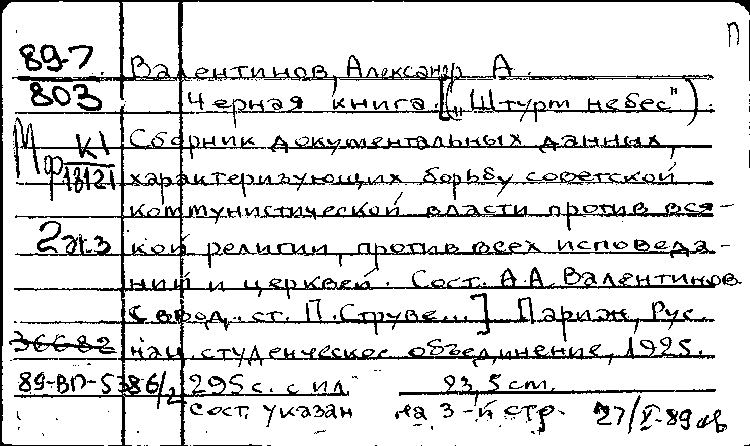 П
89-7 Валентинов, Александр А.
803 Черная книга. [("Штурм небес").
Мф К1 Сборник документальных данных,
18121 характеризующих борьбу советской
коммунистической власти против вся-
2 эк.з кой религии, против всех исповеда-
ний и церквей. Сост. А.А. Валентинов
с ввод. ст. П. Струве...] Париж, Рус.
36682 нац. студенческое объединение, 1925.
89-ВП-5386/2 295 с. с ил. 23,5 cm.
сост. указан на 3-й стр. 27/V-89